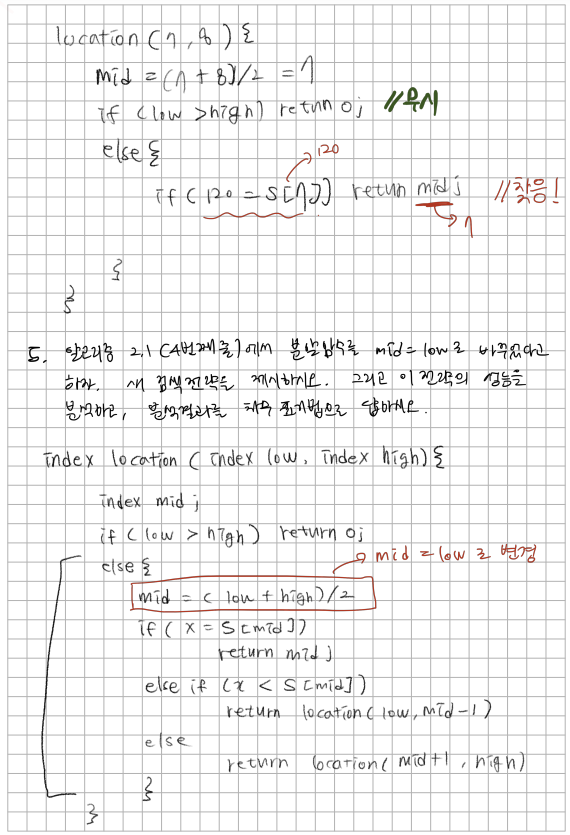 location (7, 8) {
mid = (7 + 8)/2 = 7
if (low > high) return 0; //무시
else {
120
if (120 = S[7]) return mid; //찾음!
7
}
}
5. 알고리즘 2.1 (4번째줄)에서 분할함수를 mid = low로 바꾸었다고
하자. 새 검색전략을 제시하시오. 그리고 이 전략의 성능을
분석하고, 분석결과를 차수 표기법으로 답하시오.
index location ( index low, index high) {
index mid;
if ( low > high ) return 0;
else { mid = low로 변경
mid = ( low + high)/2
if ( x = S[mid])
return mid;
else if (x < S[mid])
return location( low, mid-1)
else
return location( mid+1, high)
}
}